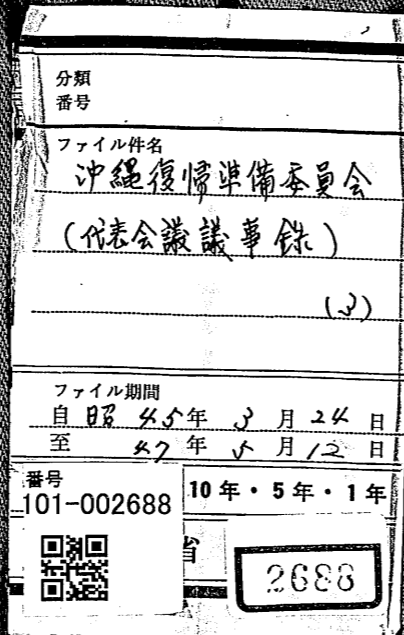 分類
番号
ファイル件名
沖縄復帰準備委員会
(代表会議議事録)
(3)
ファイル期間
自 昭 45年 3月 24日
至 47年 5月 12日
番号
101-002688
10年・5年・1年
省
2688